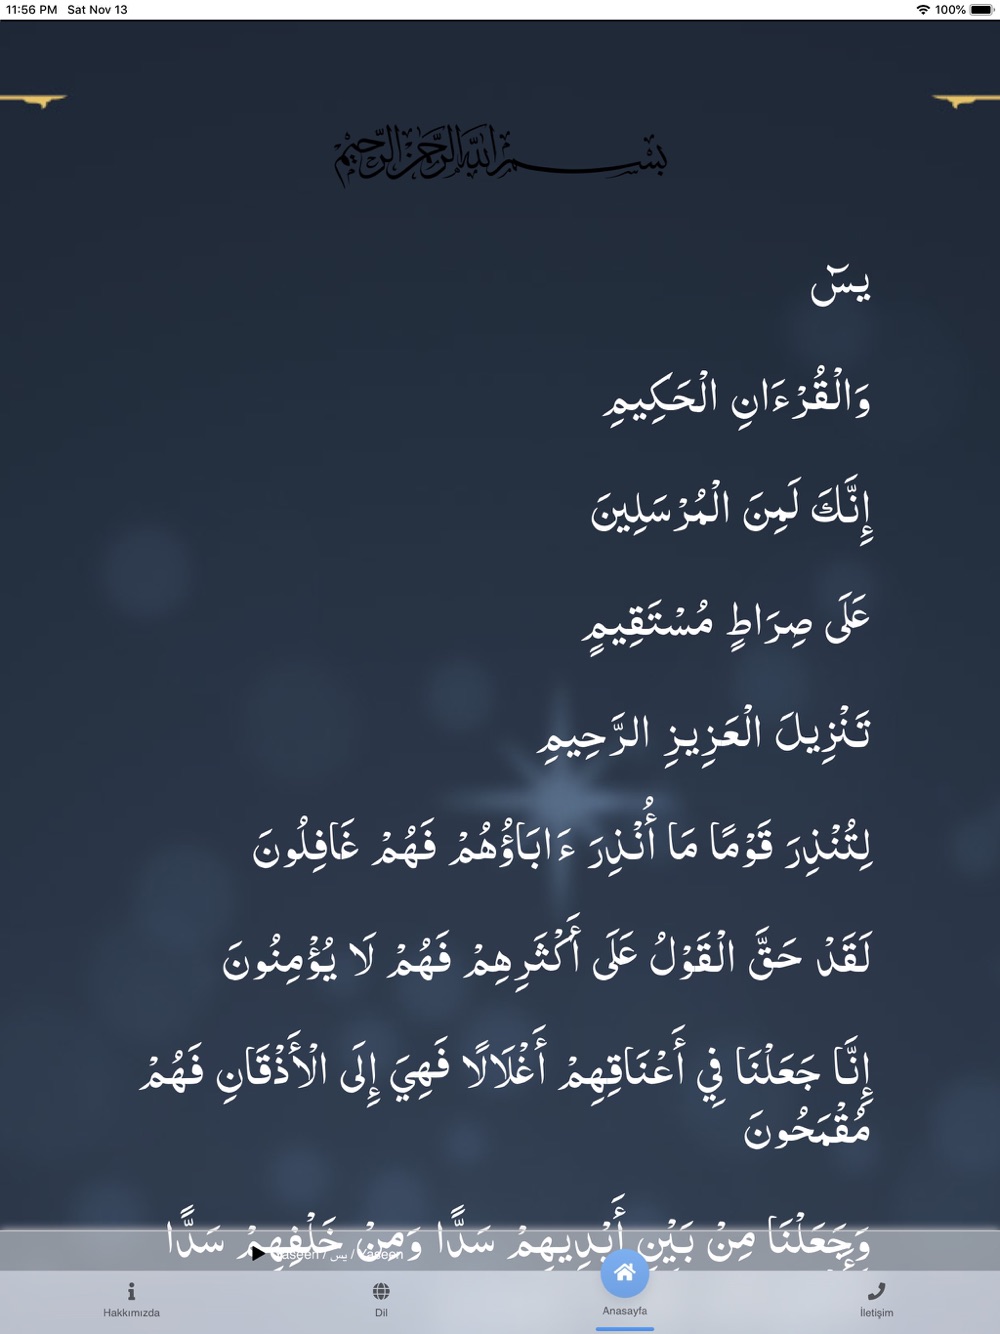 11:56 PM Sat Nov 13 100%
بسم الله الرحمن الرحيم
يسٓ
وَالْقُرْءَانِ الْحَكِيمِ
إِنَّكَ لَمِنَ الْمُرْسَلِينَ
عَلَى صِرَاطٍ مُسْتَقِيمٍ
تَنْزِيلَ الْعَزِيزِ الرَّحِيمِ
لِتُنْذِرَ قَوْمًا مَا أُنْذِرَ ءَابَاؤُهُمْ فَهُمْ غَافِلُونَ
لَقَدْ حَقَّ الْقَوْلُ عَلَى أَكْثَرِهِمْ فَهُمْ لَا يُؤْمِنُونَ
إِنَّا جَعَلْنَا فِي أَعْنَاقِهِمْ أَغْلَالًا فَهِيَ إِلَى الْأَذْقَانِ فَهُمْ
مُقْمَحُونَ
وَجَعَلْنَا مِنْ بَيْنِ أَيْدِيهِمْ سَدًّا وَمِنْ خَلْفِهِمْ سَدًّا
Yaseen / يس / Yaseen
Hakkımızda Dil Anasayfa İletişim